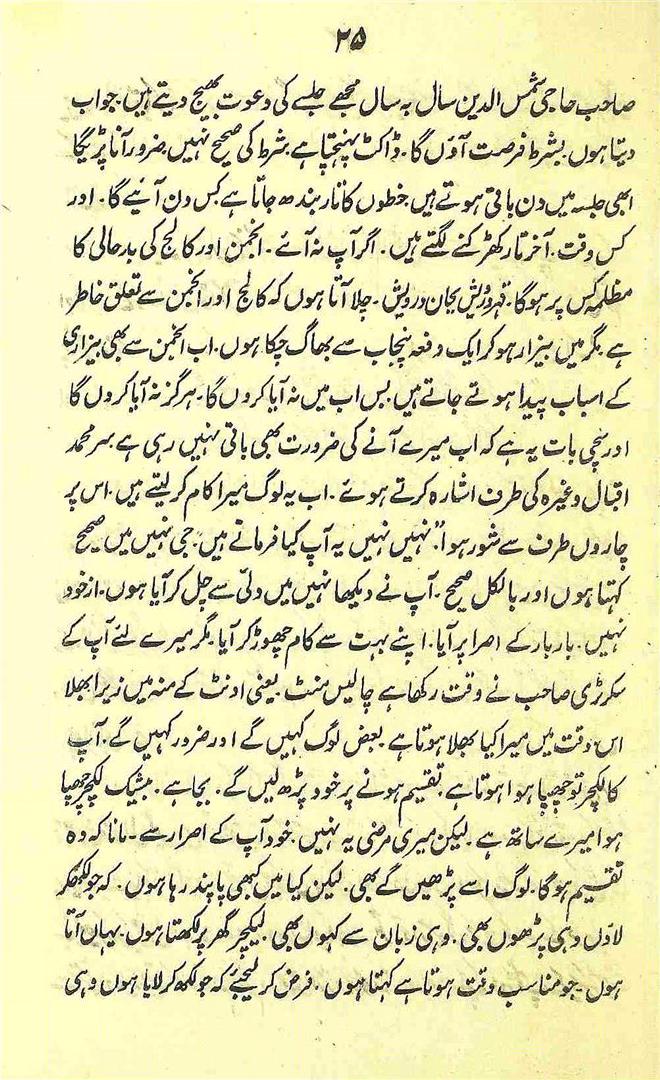 ۲۵
صاحب حاجی شمس الدین سال بہ سال مجھے جلسے کی دعوت بھیج دیتے ہیں۔ جواب
دیتا ہوں۔ بشرط فرصت آؤں گا۔ ڈاکٹ پہنچتا ہے شرط کی صحیح نہیں۔ ضرور آنا پڑیگا
ابھی جلسہ میں دن باقی ہوتے ہیں۔ خطوں کا تار بندھ جاتا ہے کس دن آئیے گا۔ اور
کس وقت۔ آخر تار کھڑکنے لگتے ہیں۔ اگر آپ نہ آئے۔ انجمن اور کالج کی بدحالی کا
مظلمہ کس پر ہوگا۔ قہر درویش بجان درویش۔ چلا آتا ہوں کہ کالج اور انجمن سے تعلق خاطر
ہے۔ مگر میں بیزار ہو کر ایک دفعہ پنجاب سے بھاگ چکا ہوں۔ اب انجمن سے بھی بیزاری
کے اسباب پیدا ہوتے جاتے ہیں۔ بس اب میں نہ آیا کروں گا۔ ہرگز نہ آیا کروں گا
اور سچی بات یہ ہے کہ اب میرے آنے کی ضرورت بھی باقی نہیں رہی ہے۔ سر محمد
اقبال وغیرہ کی طرف اشارہ کرتے ہوئے۔ اب یہ لوگ میرا کام کر لیتے ہیں۔ اس پر
چاروں طرف سے شور ہوا "نہیں نہیں یہ آپ کیا فرماتے ہیں۔ جی نہیں میں صحیح
کہتا ہوں اور بالکل صحیح۔ آپ نے دیکھا نہیں میں دلّی سے چل کر آیا ہوں۔ از خود
نہیں۔ بار بار کے اصرار پر آیا۔ اپنے بہت سے کام چھوڑ کر آیا۔ مگر میرے لئے آپ کے
سکرٹری صاحب نے وقت رکھا ہے چالیس منٹ۔ یعنی اونٹ کے منہ میں زیرا بھلا
اس وقت میں میرا کیا بھلا ہوتا ہے۔ بعض لوگ کہیں گے اور ضرور کہیں گے۔ آپ
کا لکچر تو چھپا ہوا ہوتا ہے۔ تقسیم ہونے پر خود پڑھ لیں گے۔ بجا ہے۔ بیشک لکچر چھپا
ہوا میرے ساتھ ہے۔ لیکن میری مرضی یہ نہیں۔ خود آپ کے اصرار سے۔ مانا کہ وہ
تقسیم ہوگا۔ لوگ اسے پڑھیں گے بھی۔ لیکن کیا میں کبھی پابند رہا ہوں۔ کہ جو لکھکر
لاؤں وہی پڑھوں بھی۔ وہی زبان سے کہوں بھی۔ لیکچر گھر پر لکھتا ہوں۔ یہاں آتا
ہوں۔ جو مناسب وقت ہوتا ہے کہتا ہوں۔ فرض کر لیجئے کہ جو لکھ کر لایا ہوں وہی